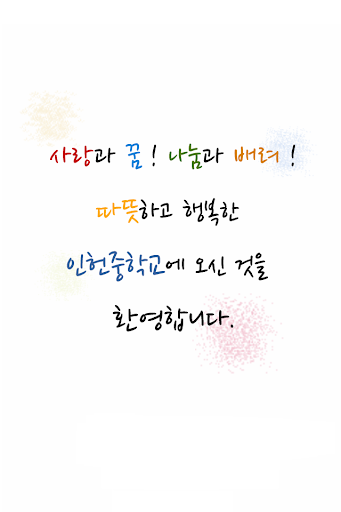 사랑과 꿈! 나눔과 배려!
따뜻하고 행복한
인헌중학교에 오신 것을
환영합니다.